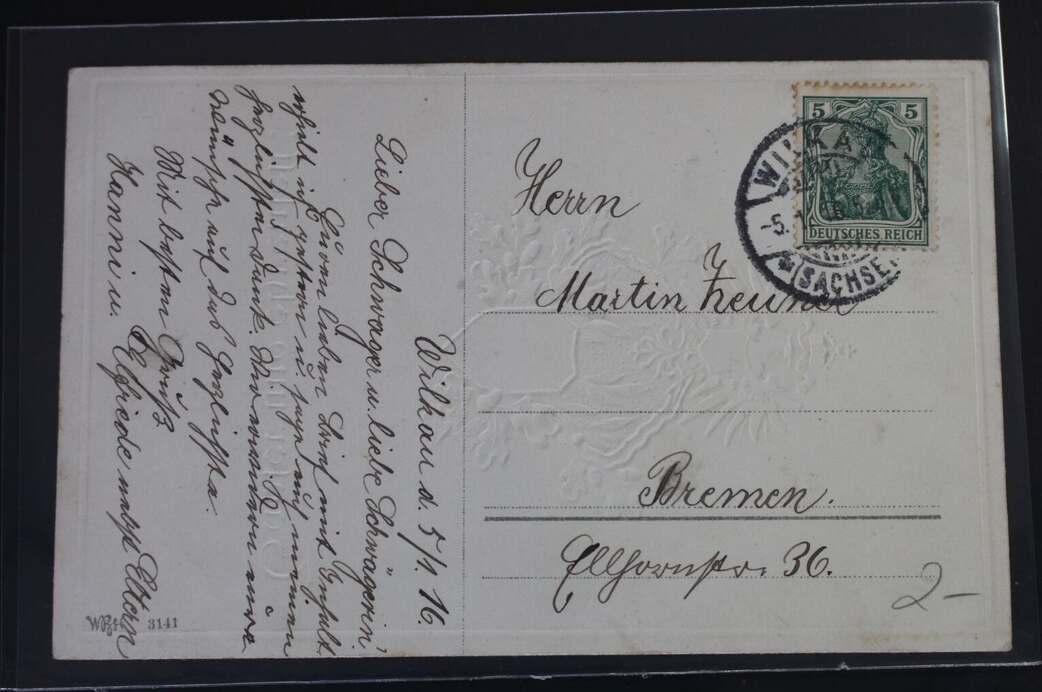 Wilkau d. 5/1. 16.
Lieber Schwager u. liebe Schwägerin,
Euren lieben Brief mit Inhalt
erhielt ich gestern u. sage euch meinen
herzlichsten Dank. Wir erwidern eure
Wünsche auf das herzlichste.
Mit bestem Gruß
Hanni u. Elfriede nebst Eltern
Herrn
Martin Zeuner
Bremen.
Ellhornstr. 36.
5 5
DEUTSCHES REICH
WILKAU
-5.1.
(SACHSEN)
3141
2-